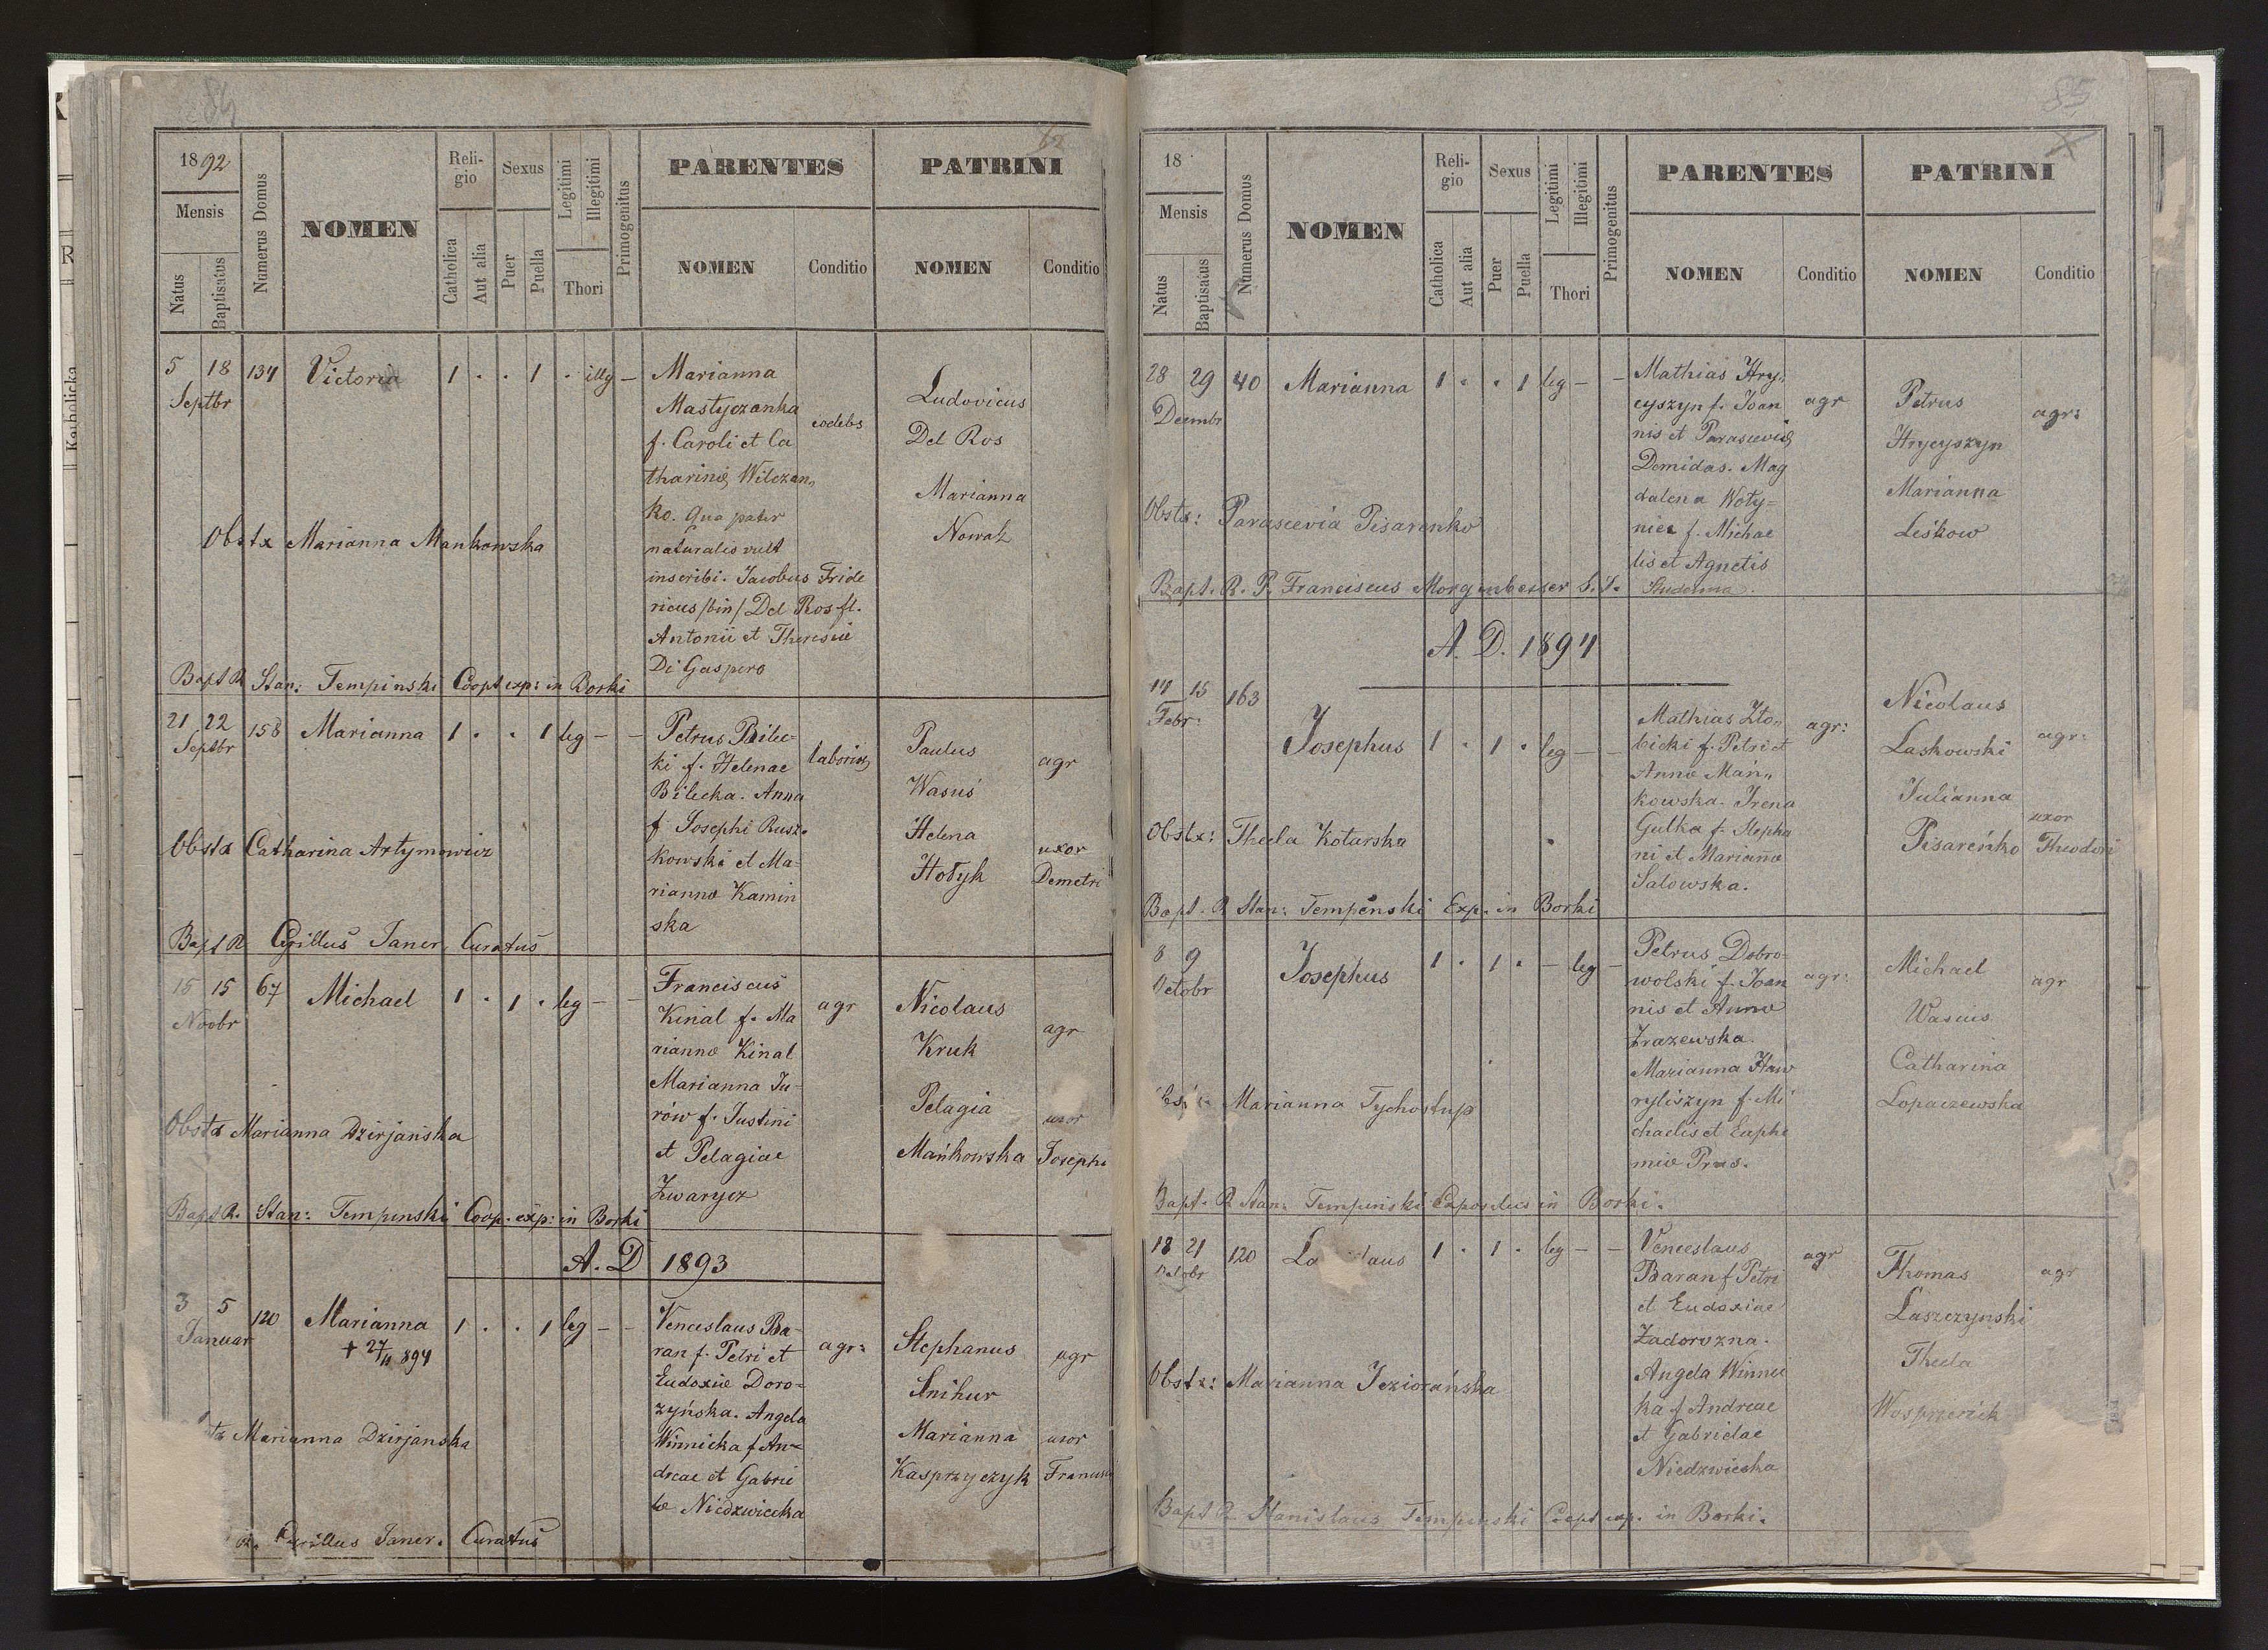 84
1892
Mensis
Natus
Baptisatus
Numerus Domus
NOMEN
Reli-
gio
Catholica
Aut alia
Sexus
Puer
Puella
Legitimi
Illegitimi
Thori
Primogenitus
PARENTES
NOMEN
Conditio
PATRINI
NOMEN
Conditio
5 18 134 Victoria 1 . . 1 . illg –
Septbr
Marianna
Mastyczanka
f. Caroli et Ca
tharinæ Wilczan„
ko. Qua pater
naturalis vult
inscribi. Jacobus Fride
ricus /bin/ Del Ros fl.
Antonii et Theresiæ
Di Gaspero
Ludovicus
Del Ros
Marianna
Nowak
Obstx Marianna Mankowska
Bapt R Stan: Tempinski Coopt exp: in Borki
21 22 158 Marianna 1 . . 1 leg – –
Septbr
Petrus Bilec-
ki f. Helenae
Bilecka. Anna
f. Josephi Rusz-
kowski et Ma-
riannæ Kamin
ska
Paulus
Wasuś
agr
Helena
Hołyk
uxor
Demetri
Obstx Catharina Artymowicz
Bapt R Cyrillus Janer Curatus
15 15 67 Michael 1 . 1 . leg – –
Novbr
Franciscus
Kinal f. Ma
riannæ Kinal
Marianna Ju-
rów f. Justini
et Pelagiae
Zwarycz
agr
Nicolaus
Kruk
agr
Pelagia
Mańkowska
uxor
Josephi
Obstx Marianna Dzirjańska
Bapt R. Stan: Tempinski Coop. exp: in Borki
A. D 1893
3 5 120 Marianna 1 . . 1 leg – –
Januar
+ 27/11 894
Venceslaus Ba-
ran f. Petri et
Eudoxiæ Doro-
zyńska. Angela
Winnicka f An-
dreae et Gabrie
læ Niedzwiecka
agr:
Stephanus
Snihur
agr
Marianna
Kasprzyczyk
uxor
Marianna Dzirjanska
R. Cyrillus Janer. Curatus
85
18
Mensis
Natus
Baptisatus
Numerus Domus
NOMEN
Reli-
gio
Catholica
Aut alia
Sexus
Puer
Puella
Legitimi
Illegitimi
Thori
Primogenitus
PARENTES
NOMEN
Conditio
PATRINI
NOMEN
Conditio
28 29 40 Marianna 1 . . 1 leg – –
Decmbr
Mathias Hry„
cyszyn f. Joan
nis et Parasceviæ
Demidas. Mag
dalena Woty-
niec f. Michae
lis et Agnetis
agr
Petrus
Hrycyszyn
agr:
Marianna
Leśkow
Obstx: Parascevia Pisarenko
Bapt. R. P. Franciscus Morgenbesser S. J.
A. D. 1894
14 15 163
Febr:
Josephus 1 . 1 . leg – –
Mathias Zło„
bicki f. Petri et
Annæ Mań„
kowska. Irena
Gulka f. Stepha
ni et Mariannæ
Salowska.
agr:
Nicolaus
Laskowski
agr:
Julianna
Pisareńko
uxor
Theodori
Obstx: Thecla Kotarska
Bapt. R Stan: Tempinski Exp. in Borki
8 9 Josephus 1 . 1 . – leg –
Octobr
Petrus Dobro-
wolski f. Joan
nis et Annæ
Zrazewska.
Marianna Haw
ryliszyn f. Mi
chaelis et Euphe
miæ Prus.
agr:
Michael
Wasius
agr
Catharina
Lopaczewska
Marianna Tychostup
Bapt. R Stan: Tempinski Expositus in Borki.
18 21 120 La laus 1 . 1 . leg – –
Octobr
Venceslaus
Baran f Petri
et Eudoxiae
Zadorozna.
Angela Winnic
ka f Andreae
et Gabrielae
Niedzwiecka
agr
Thomas
Laszczynski
agr
Thecla
Obstx: Marianna Jeziorańska
Bapt R Stanislaus Tempinski Coopt exp. in Borki.